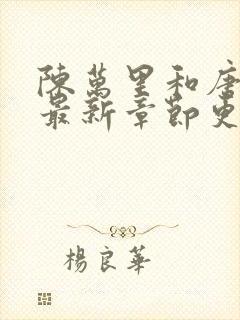 陳萬里和唐
最新章節更
楊良華